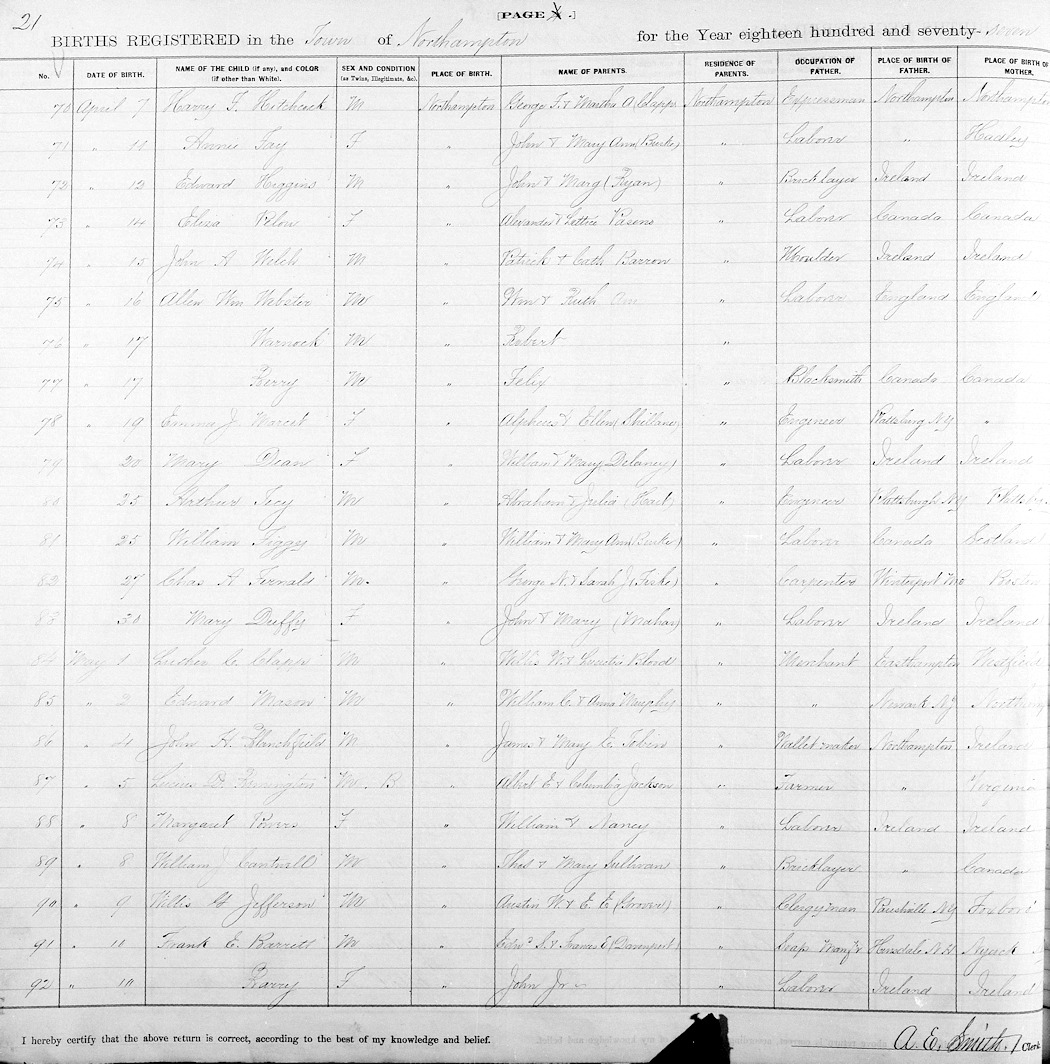 21
[PAGE .]
BIRTHS REGISTERED in the Town of Northampton for the Year eighteen hundred and seventy-seven
No. DATE OF BIRTH. NAME OF THE CHILD (if any), and COLOR (if other than White). SEX AND CONDITION (as Twins, Illegitimate, &c.). PLACE OF BIRTH. NAME OF PARENTS. RESIDENCE OF PARENTS. OCCUPATION OF FATHER. PLACE OF BIRTH OF FATHER. PLACE OF BIRTH OF MOTHER.
70 April 7 Harry F. Hitchcock M Northampton George F. & Martha A (Clapp Northampton Expressman Northampton Northampton
71 " 11 Annie Fay F " John & Mary Ann (Burke) " Laborer " Hadley
72 " 12 Edward Higgins M " John & Marg (Ryan) " Bricklayer Ireland Ireland
73 " 14 Eliza Plow F " Alexander & Lettice Pasens " Laborer Canada Canada
74 " 15 John A Welch M " Patrick & Cath Barron " Moulder Ireland Ireland
75 " 16 Allen Wm Webster M " Wm & Ruth " Laborer England England
76 " 17 Warnock M " Robert "
77 " 17 Berry M " Felix " Blacksmith Canada Canada
78 " 19 Emma J. Marcet F " Alpheus & Ellen " Engineer Plattsburg N.Y "
79 " 20 Mary Dean F " William & Mary Delaney) " Laborer Ireland Ireland
80 " 25 Arthur M " Abraham & Julia (Hart) " Engineer Plattsburgh N.Y
81 " 25 William Figgy M " William & Mary Ann (Burke) " Laborer Canada Scotland
82 " 27 Chas A Fernald M. " George N. & Sarah J (Fiske) " Carpenter Winterport Me Boston
83 30 Mary Duffy F " John & Mary (Mahar) " Laborer Ireland Ireland
84 May 1 Luther C. Clapp M " Willis W & Lucretia Blood " Merchant Easthampton Westfield
85 " 2 Edward Mason M " William C. & Anna Murphy " " Newark NJ Northamp
86 " 4 John H. Blanchfield M " James & Mary E. Tobin " Wallet maker Northampton Ireland
87 " 5 Lucius D. Remington M. B " Albert E & Columbia Jackson " Farmer " Virginia
88 " 8 Margaret Powers F " William & Nancy " Laborer Ireland Ireland
89 " 8 William J Cantwell M " Thos & Mary Sullivan " Bricklayer " Canada
90 " 9 Willis H Jefferson M " Austin W. & E. E (Groover) " Clergyman Parishville NY Foxboro
91 " 11 Frank E. Barrett M " Edwd S. & Frances E (Davenport) " Soap Manfr Hinsdale N.H Nyack
92 " 10 Barry F " John Jr " Laborer Ireland Ireland
I hereby certify that the above return is correct, according to the best of my knowledge and belief. A. E. Smith, Clerk